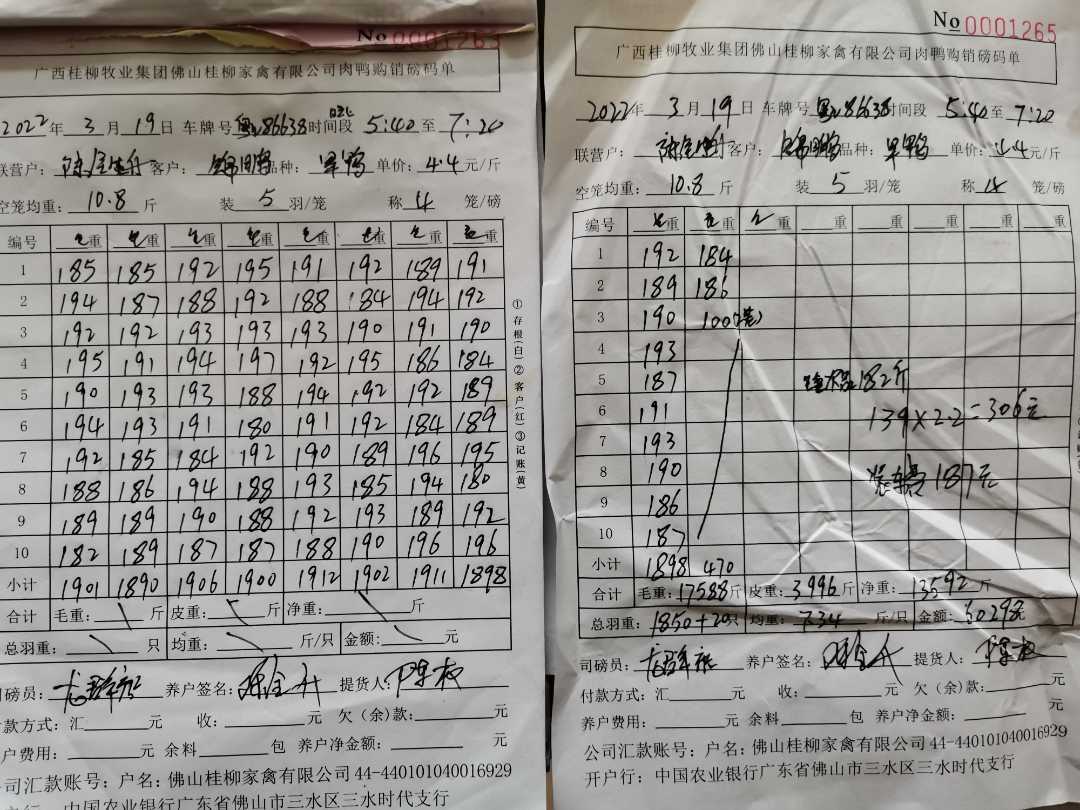 No 0001263
广西桂柳牧业集团佛山桂柳家禽有限公司肉鸭购销磅码单
2022年 3月 19日 车牌号 粤 86638 时间段 5:40 至 7:20
联营户: 客户: 品种: 单价: 4.4 元/斤
空笼均重: 10.8 斤 装 5 羽/笼 称 4 笼/磅
编号 毛重 毛重 毛重 毛重 毛重 毛重 毛重 毛重
1 185 185 192 195 191 192 189 191
2 194 187 188 192 188 184 194 192
3 192 192 193 193 193 190 191 190
4 195 191 194 197 192 195 186 184
5 190 193 193 188 194 192 192 189
6 194 193 191 180 191 192 184 189
7 192 185 184 192 190 189 196 195
8 188 186 194 188 193 185 194 180
9 189 189 190 188 192 193 189 192
10 182 189 187 187 188 190 196 196
小计 1901 1890 1906 1900 1912 1902 1911 1898
合计 毛重: 斤 皮重: 斤 净重: 斤
总羽重: 只 均重: 斤/只 金额: 元
司磅员: 养户签名: 提货人:
付款方式: 汇 元 收: 元 欠(余)款: 元
养户费用: 元 余料 包 养户净金额: 元
公司汇款账号: 户名: 佛山桂柳家禽有限公司 44-440101040016929
开户行: 中国农业银行广东省佛山市三水区三水时代支行
①存根(白)②客户(红)③记账(黄)
No 0001265
广西桂柳牧业集团佛山桂柳家禽有限公司肉鸭购销磅码单
2022年 3月 19日 车牌号 粤 86638 时间段 5:40 至 7:20
联营户: 客户: 品种: 单价: 4.4 元/斤
空笼均重: 10.8 斤 装 5 羽/笼 称 4 笼/磅
编号 毛重 毛重 毛重 重 重 重 重 重
1 192 184
2 189 186
3 190 100
4 193
5 187 182斤
6 191 139×2.2=306元
7 193
8 190 187元
9 186
10 187
小计 1898 470
合计 毛重: 17588 斤 皮重: 3996 斤 净重: 13592 斤
总羽重: 1850+20 只 均重: 7.34 斤/只 金额: 50298元
司磅员: 养户签名: 提货人:
付款方式: 汇 元 收: 元 欠(余)款: 元
养户费用: 元 余料 包 养户净金额: 元
公司汇款账号: 户名: 佛山桂柳家禽有限公司 44-440101040016929
开户行: 中国农业银行广东省佛山市三水区三水时代支行